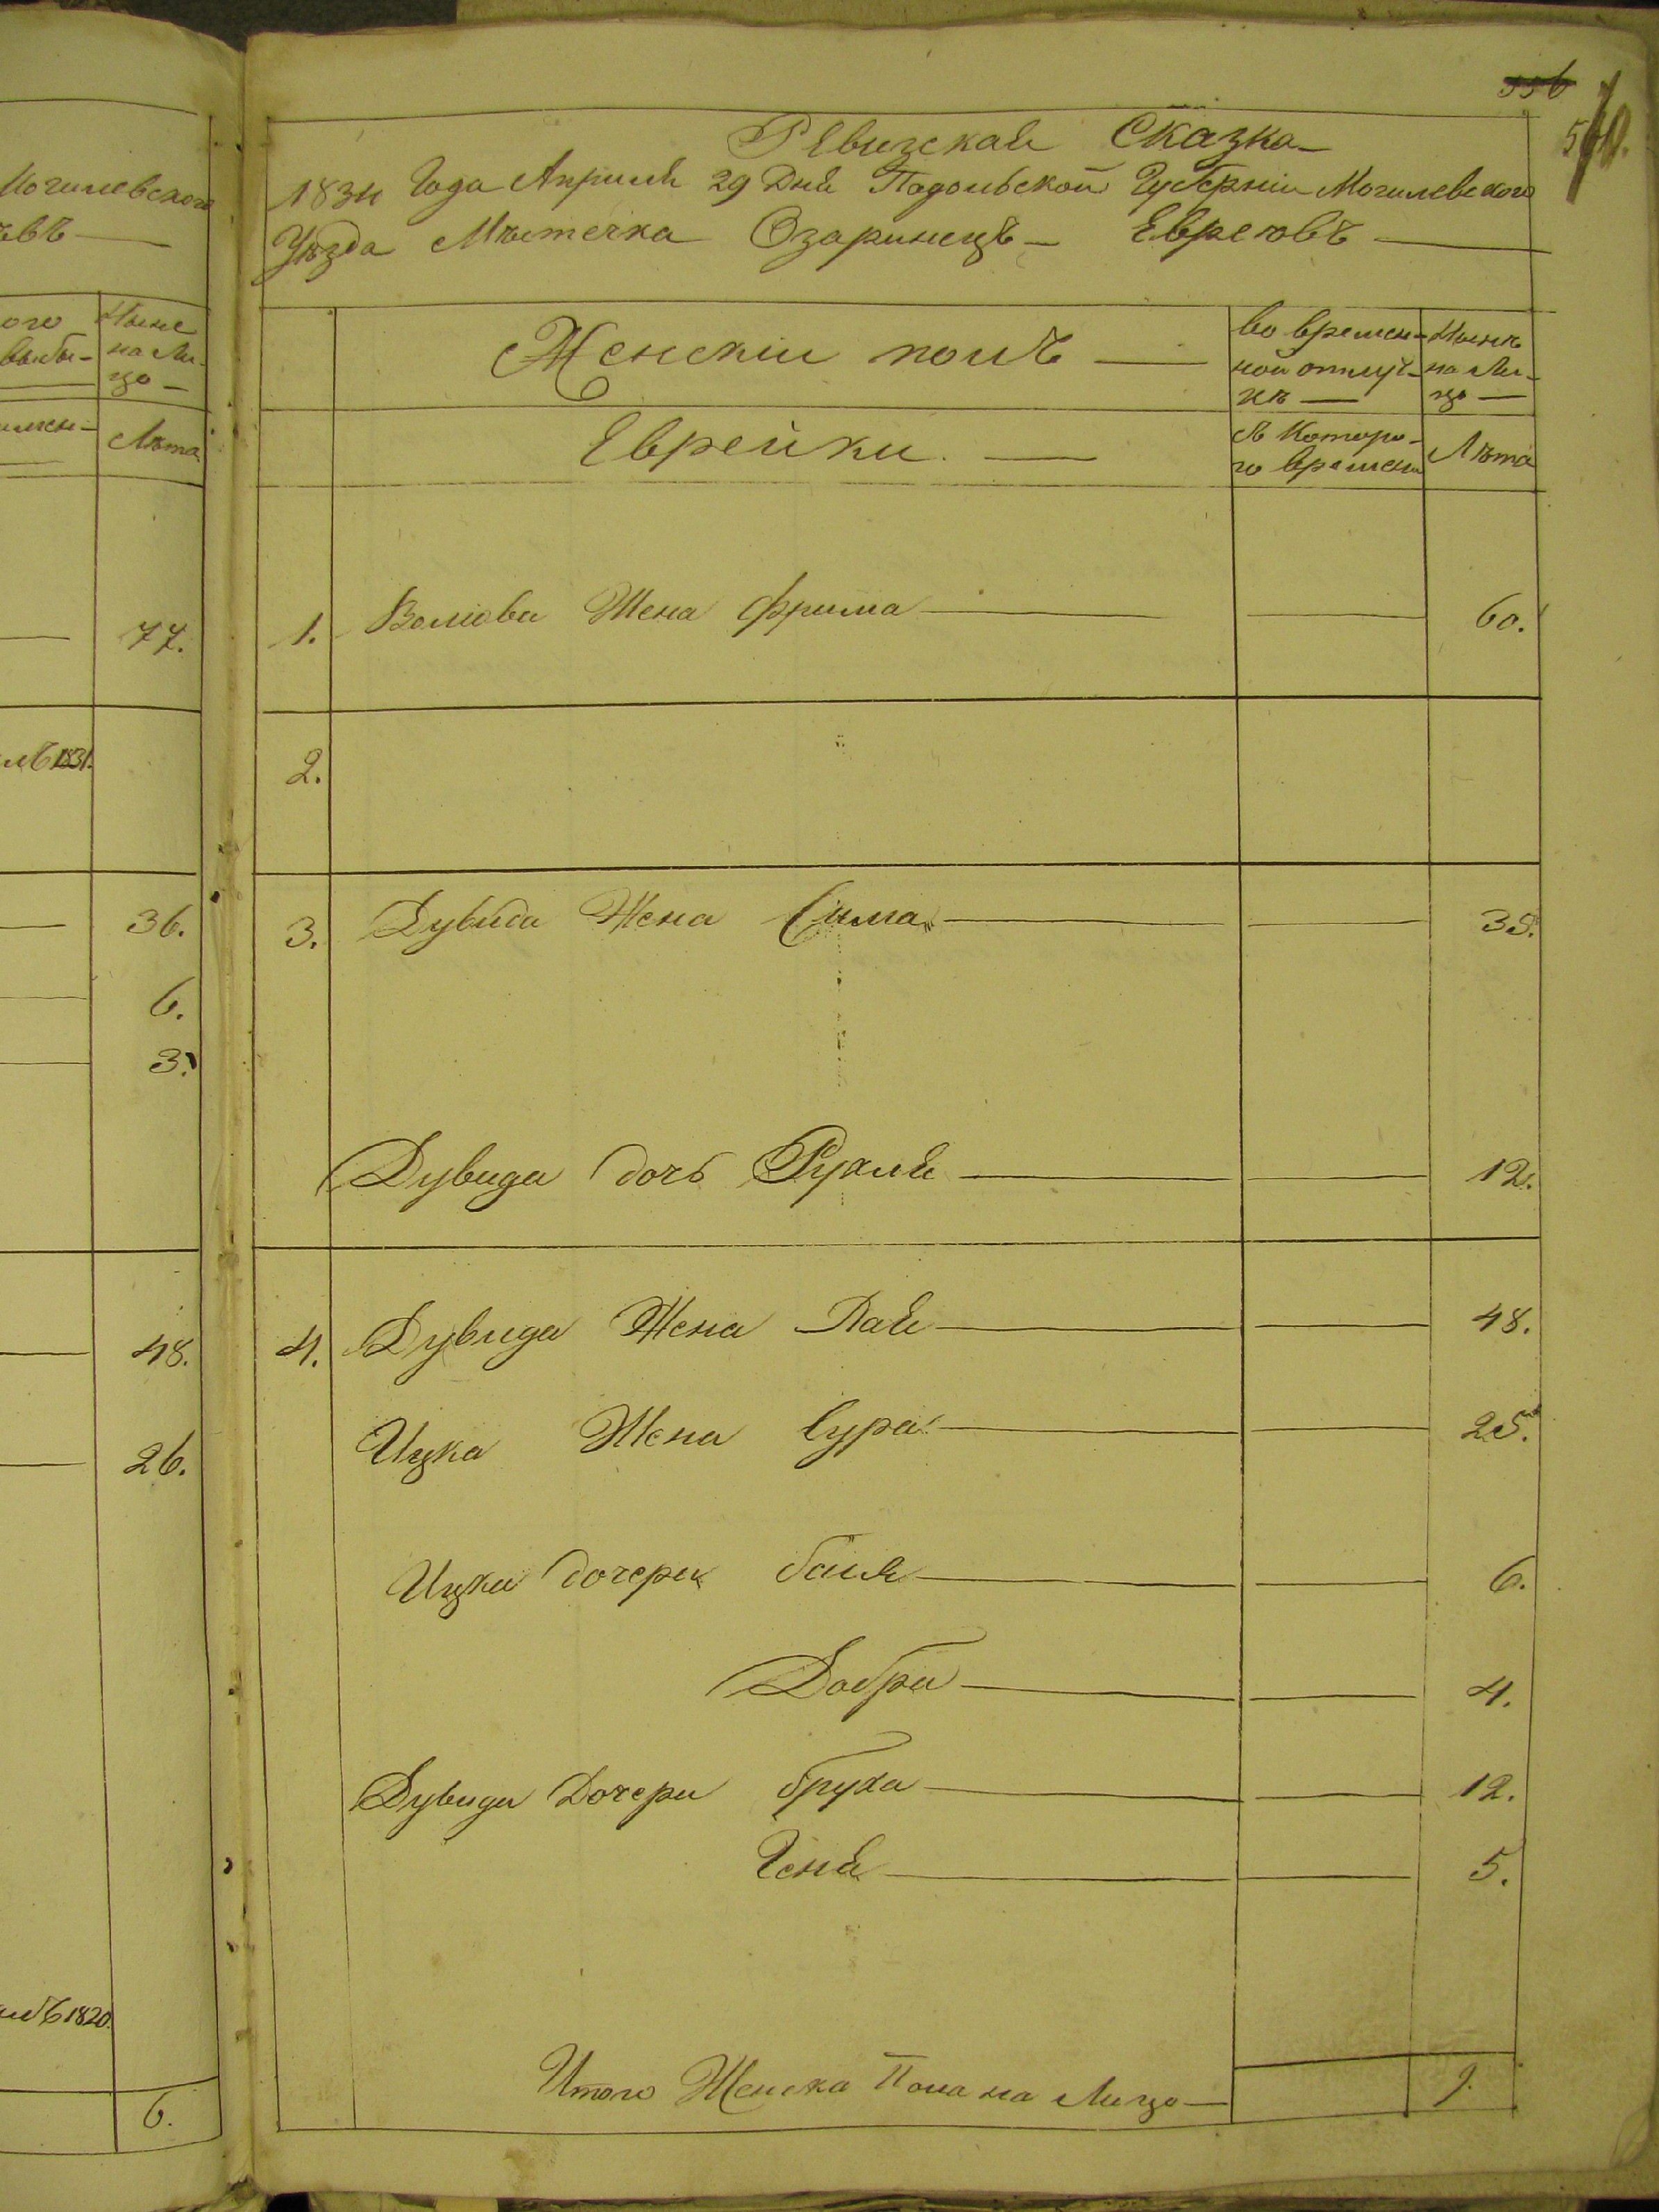 Могилевского
ѣвъ
ого
выбы-
Ныне
на Ли-
цо
Лѣта
77.
1831.
36.
6.
3.
48.
26.
1820.
6.
556
Ревизская Сказка
1834 Года Апреля 29 Дня Подольской Губерніи Могилевского
Уѣзда Мѣстечка Озаринецъ Евреювъ
Женскіи полъ
во времен-
ной отлуч-
кѣ
Нынѣ
на Ли-
цо
Еврейки.
съ Которо-
го времени
Лѣта
1. Волѣова Жена Фрима 60.
2.
3. Дувида Жена Сима 35.
Дувида дочь Рухля 12.
4. Дувида Жена Пая 48.
Ицка Жена Сура 25.
Ицка дочери баня 6.
Добра 4.
Дувида Дочери бруха 12.
Геня 5.
Итого Женска Пола на Лицо 9.